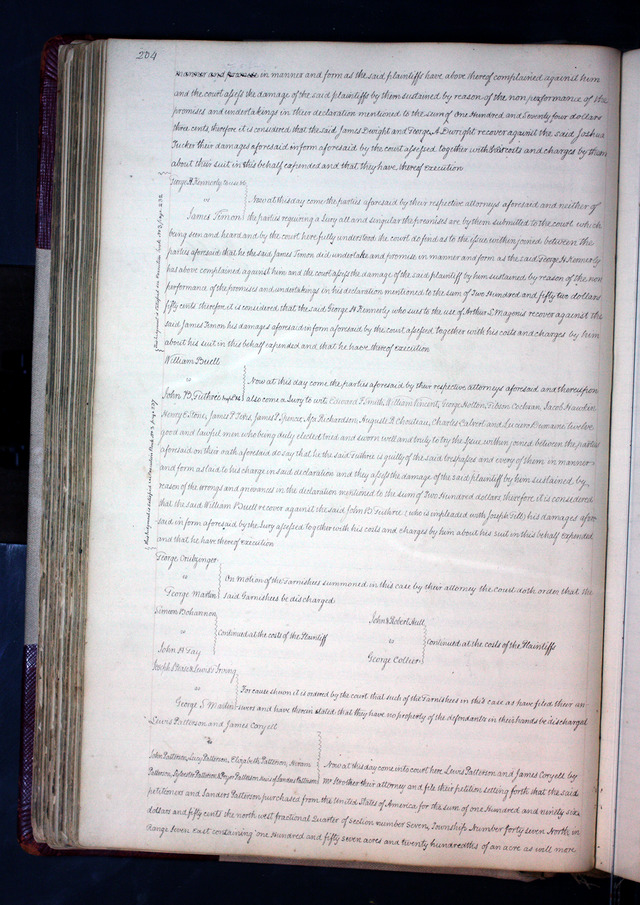 204
in manner and form as the said plaintiffs have above thereof complained against him
and the court assess the damage of the said plaintiffs by them sustained by reason of the non performance of the
promises and undertakings in their declaration mentioned to the sum of One Hundred and Seventy four dollars
three cents, therefore it is considered that the said James Dwight and George A Dwright recover against the said Joshua
Tucker their damages aforesaid in form aforesaid by the court assessed together with their costs and charges by them
about their suit in this behalf expended and that they have thereof execution
George H Kennerly to use
vs
Now at this day come the parties aforesaid by their respective attorneys aforesaid and neither of
James Timon the parties requiring a Jury all and singular the premises are by them submitted to the court which
being seen and heard and by the court here fully understood the court do find as to the issue within joined between the
parties aforesaid that he the said James Timon did undertake and promise in manner and form as the said George H Kennerly
has above complained against him and the court assess the damage of the said plaintiff by him sustained by reason of the non
performance of the promises and undertakings in his declaration mentioned to the sum of Two Hundred and fifty two dollars
fifty cents therefore it is considered that the said George H Kennerly who sues to the use of Arthur L Magenis recover against the
said James Timon his damages aforesaid in form aforesaid by the court assessed together with his costs and charges by him
about his suit in this behalf expended and that he have thereof execution
William Buell
vs
Now at this day come the parties aforesaid by their respective attorneys aforesaid and thereupon
John B Guthrie also come a Jury to wit, Edward F Smith, William Vincent, George Morton, Gibson Cochran, Jacob Hawden
Henry E Stone, James P Jobs, James P Spence, Asa Richardson, Auguste R Chouteau, Charles Calvert and Luciern Dumaine twelve
good and lawful men who being duly elected tried and sworn well and truly to try the Issue within joined between the parties
aforesaid on their oath aforesaid do say that he the said Guthrie is guilty of the said trespasses and every of them in manner
and form as laid to his charge in said declaration and they assess the damage of the said plaintiff by him sustained, by
reason of the wrongs and grievances in the declaration mentioned to the sum of Two Hundred dollars therefore it is considered
that the said William Buell recover against the said John B Guthrie (who is impleaded with Joseph Tell) his damages afore
said in form aforesaid by the Jury assessed together with his costs and charges by him about his suit in this behalf expended
and that he have thereof execution
George Creitzinger
vs
On motion of the Garnishees summoned in this case by their attorney the court doth order that the
George Martin said Garnishees be discharged
Simeon Bohannon
vs
Continued at the costs of the Plaintiff
John A Fay
John & Robert Hull
vs
continued at the costs of the Plaintiffs
George Collier
Joseph Pease & Lewis Irving
vs
For cause shown it is ordered by the court that such of the Garnishees in this case as have filed their an
George S Maden swers and have therein stated that they have no property of the defendants in their hands be discharged
Lewis Patterson and James Coryell
vs
John Patterson, Lucy Patterson, Elizabeth Patterson,
Now at this day come into court here Lewis Patterson and James Coryell by
Patterson, Sylvester Patterson & Pryor Patterson heirs of Sanders Patterson
Mr Strother their attorney and file their petition setting forth that the said
petitioners and Sanders Patterson purchased from the United States of America for the sum of one Hundred and ninety six
dollars and fifty cents the north west fractional Quarter of section number Seven, Township Number forty seven North in
Range Seven East containing one Hundred and fifty seven acres and twenty hundredths of an acre as will more